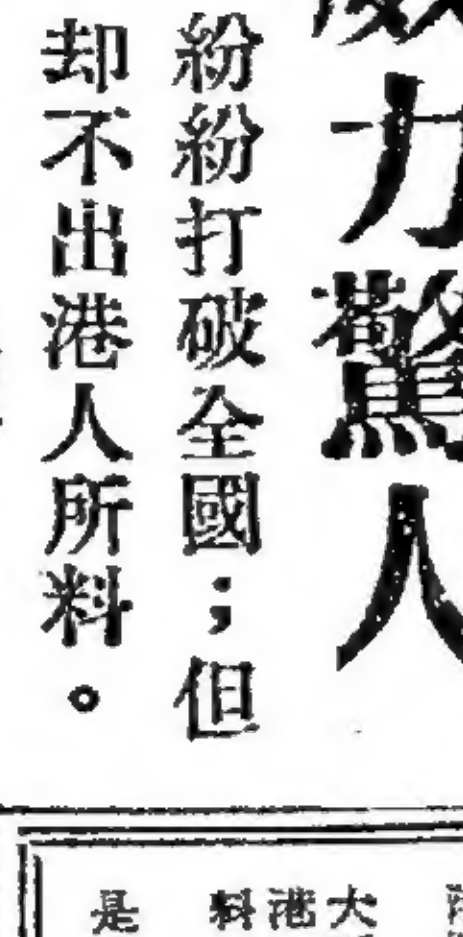 威力驚人
紛紛打破全國；但
却不出港人所料。
大
港
料
是